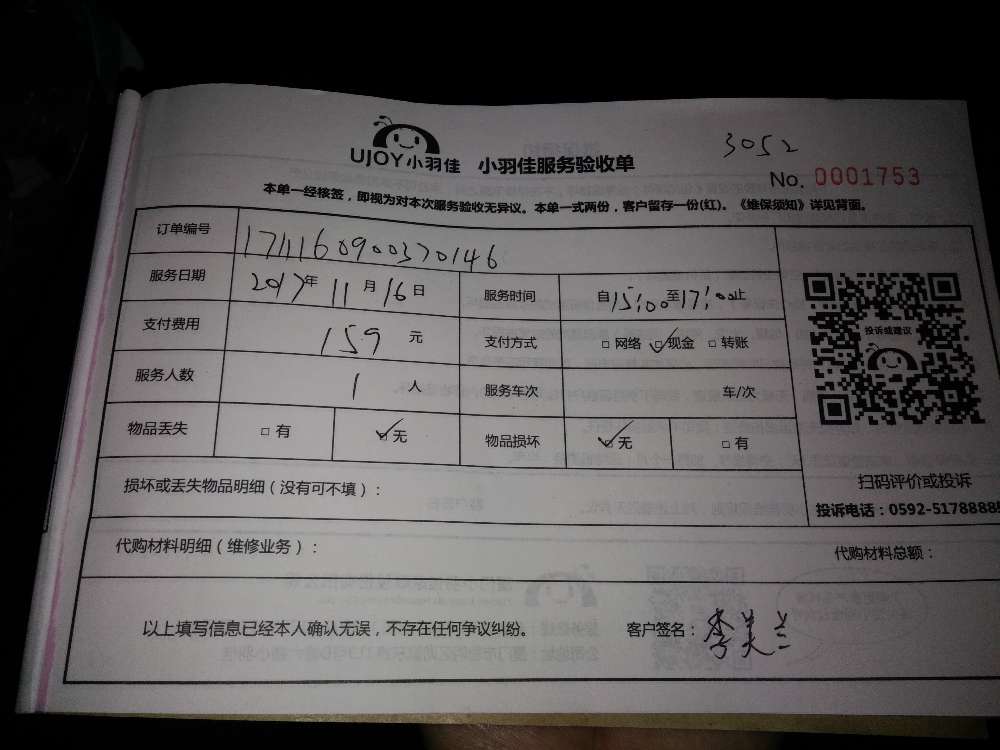 3052
UJOY小羽佳 小羽佳服务验收单
No. 0001753
本单一经核签，即视为对本次服务验收无异议。本单一式两份，客户留存一份(红)。《维保须知》详见背面。
订单编号 1711160900370146
服务日期 2017年 11月 16日 服务时间 自15:00至17:00止
支付费用 159 元 支付方式 □ 网络 ☑现金 □ 转账
服务人数 1 人 服务车次 车/次
物品丢失 □ 有 ☑无 物品损坏 ☑无 □ 有
投诉或建议
扫码评价或投诉
投诉电话：0592-5178888
损坏或丢失物品明细（没有可不填）：
代购材料明细（维修业务）： 代购材料总额：
以上填写信息已经本人确认无误，不存在任何争议纠纷。 客户签名：李美兰